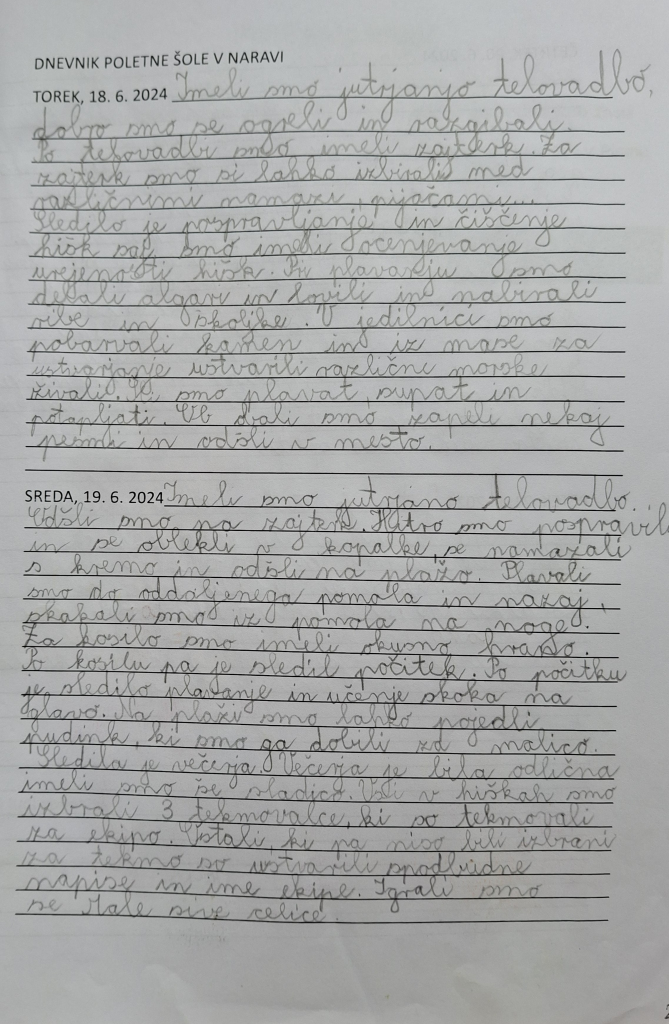 DNEVNIK POLETNE ŠOLE V NARAVI
TOREK, 18. 6. 2024 Imeli smo jutrjanjo telovadbo,
dobro smo se ogreli in razgibali.
Po telovadbi smo imeli zajterk. Za
zajterk smo si lahko izbirali med
različnimi namazi, pijačami...
Sledilo je pospravljanje in čiščenje
hišk saj smo imeli ocenjevanje
urejenosti hišk. Pri plavanju smo
delali algav in lovili in nabirali
ribe in školjke. V jedilnici smo
pobarvali kamen in iz mase za
ustvarjanje ustvarili različne morske
živali. Šli smo plavat, supat in
potapljati. Ob obali smo zapeli nekaj
pesmi in odšli v mesto.
SREDA, 19. 6. 2024 Imeli smo jutrjano telovadbo.
Odšli smo na zajterk. Hitro smo pospravili
in se oblekli v kopalke, se namazali
s kremo in odšli na plažo. Plavali
smo do oddaljenega pomola in nazaj,
skakali smo iz pomola na noge.
Za kosilo smo imeli okusno hrano.
Po kosilu pa je sledil počitek. Po počitku
je sledilo plavanje in učenje skoka na
glavo. Na plaži smo lahko pojedli
pudink, ki smo ga dobili za malico.
Sledila je večerja. Večerja je bila odlična
imeli smo še sladico. Vsi v hiškah smo
izbrali 3 tekmovalce, ki so tekmovali
za ekipo. Ostali, ki pa niso bili izbrani
za tekmo so ustvarili spodbudne
napise in ime ekipe. Igrali smo
se Male sive celice.